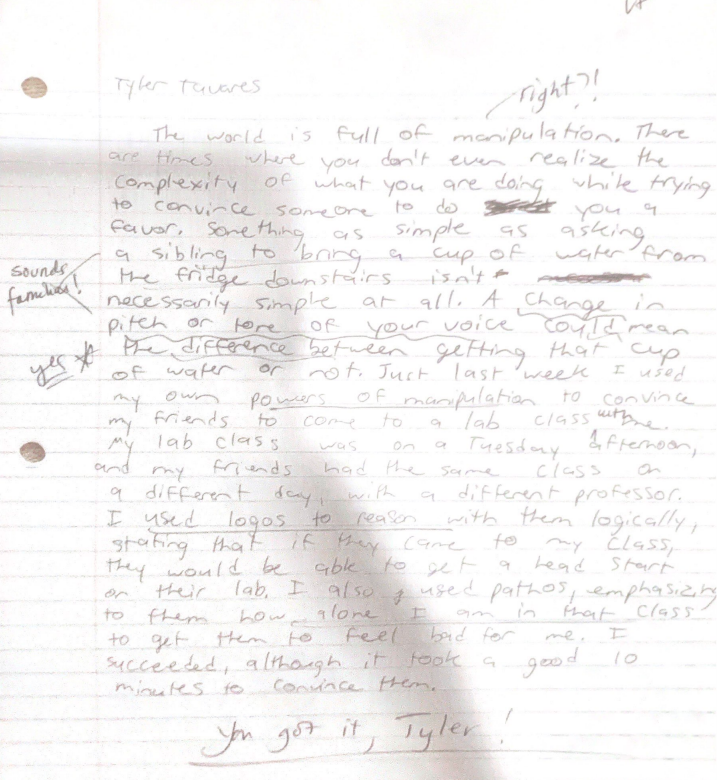 Tyler Tavares
right?!
The world is full of manipulation. There
are times where you don't even realize the
complexity of what you are doing while trying
to convince someone to do you a
favor. Something as simple as asking
a sibling to bring a cup of water from
sounds
familiar!
the fridge downstairs isn't
necessarily simple at all. A change in
pitch or tone of your voice could mean
yes
the difference between getting that cup
of water or not. Just last week I used
my own powers of manipulation to convince
my friends to come to a lab class with me.
My lab class was on a Tuesday afternoon,
and my friends had the same class on
a different day, with a different professor.
I used logos to reason with them logically,
stating that if they came to my class,
they would be able to get a head start
on their lab. I also used pathos, emphasizing
to them how alone I am in that class
to get them to feel bad for me. I
succeeded, although it took a good 10
minutes to convince them.
You got it, Tyler!